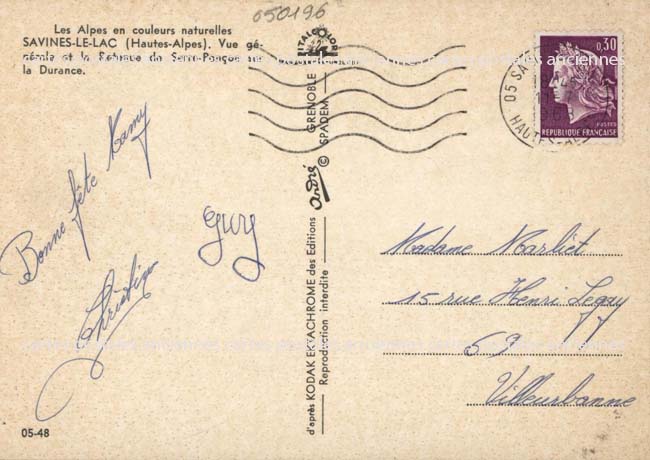 050196
Les Alpes en couleurs naturelles
SAVINES-LE-LAC (Hautes-Alpes). Vue gé-
nérale et la Retenue de Serre-Ponçon sur
la Durance.
Bonne fête Mamy
Christine
Gury
05-48
d'après KODAK EKTACHROME des Editions André GRENOBLE
Reproduction interdite © SPADEM
ITALCOLOR
05 SA
HAUTES-AL
0,30
POSTES
REPUBLIQUE FRANÇAISE
Madame Marliet
15 rue Henri Legay
69
Villeurbanne
anciennes